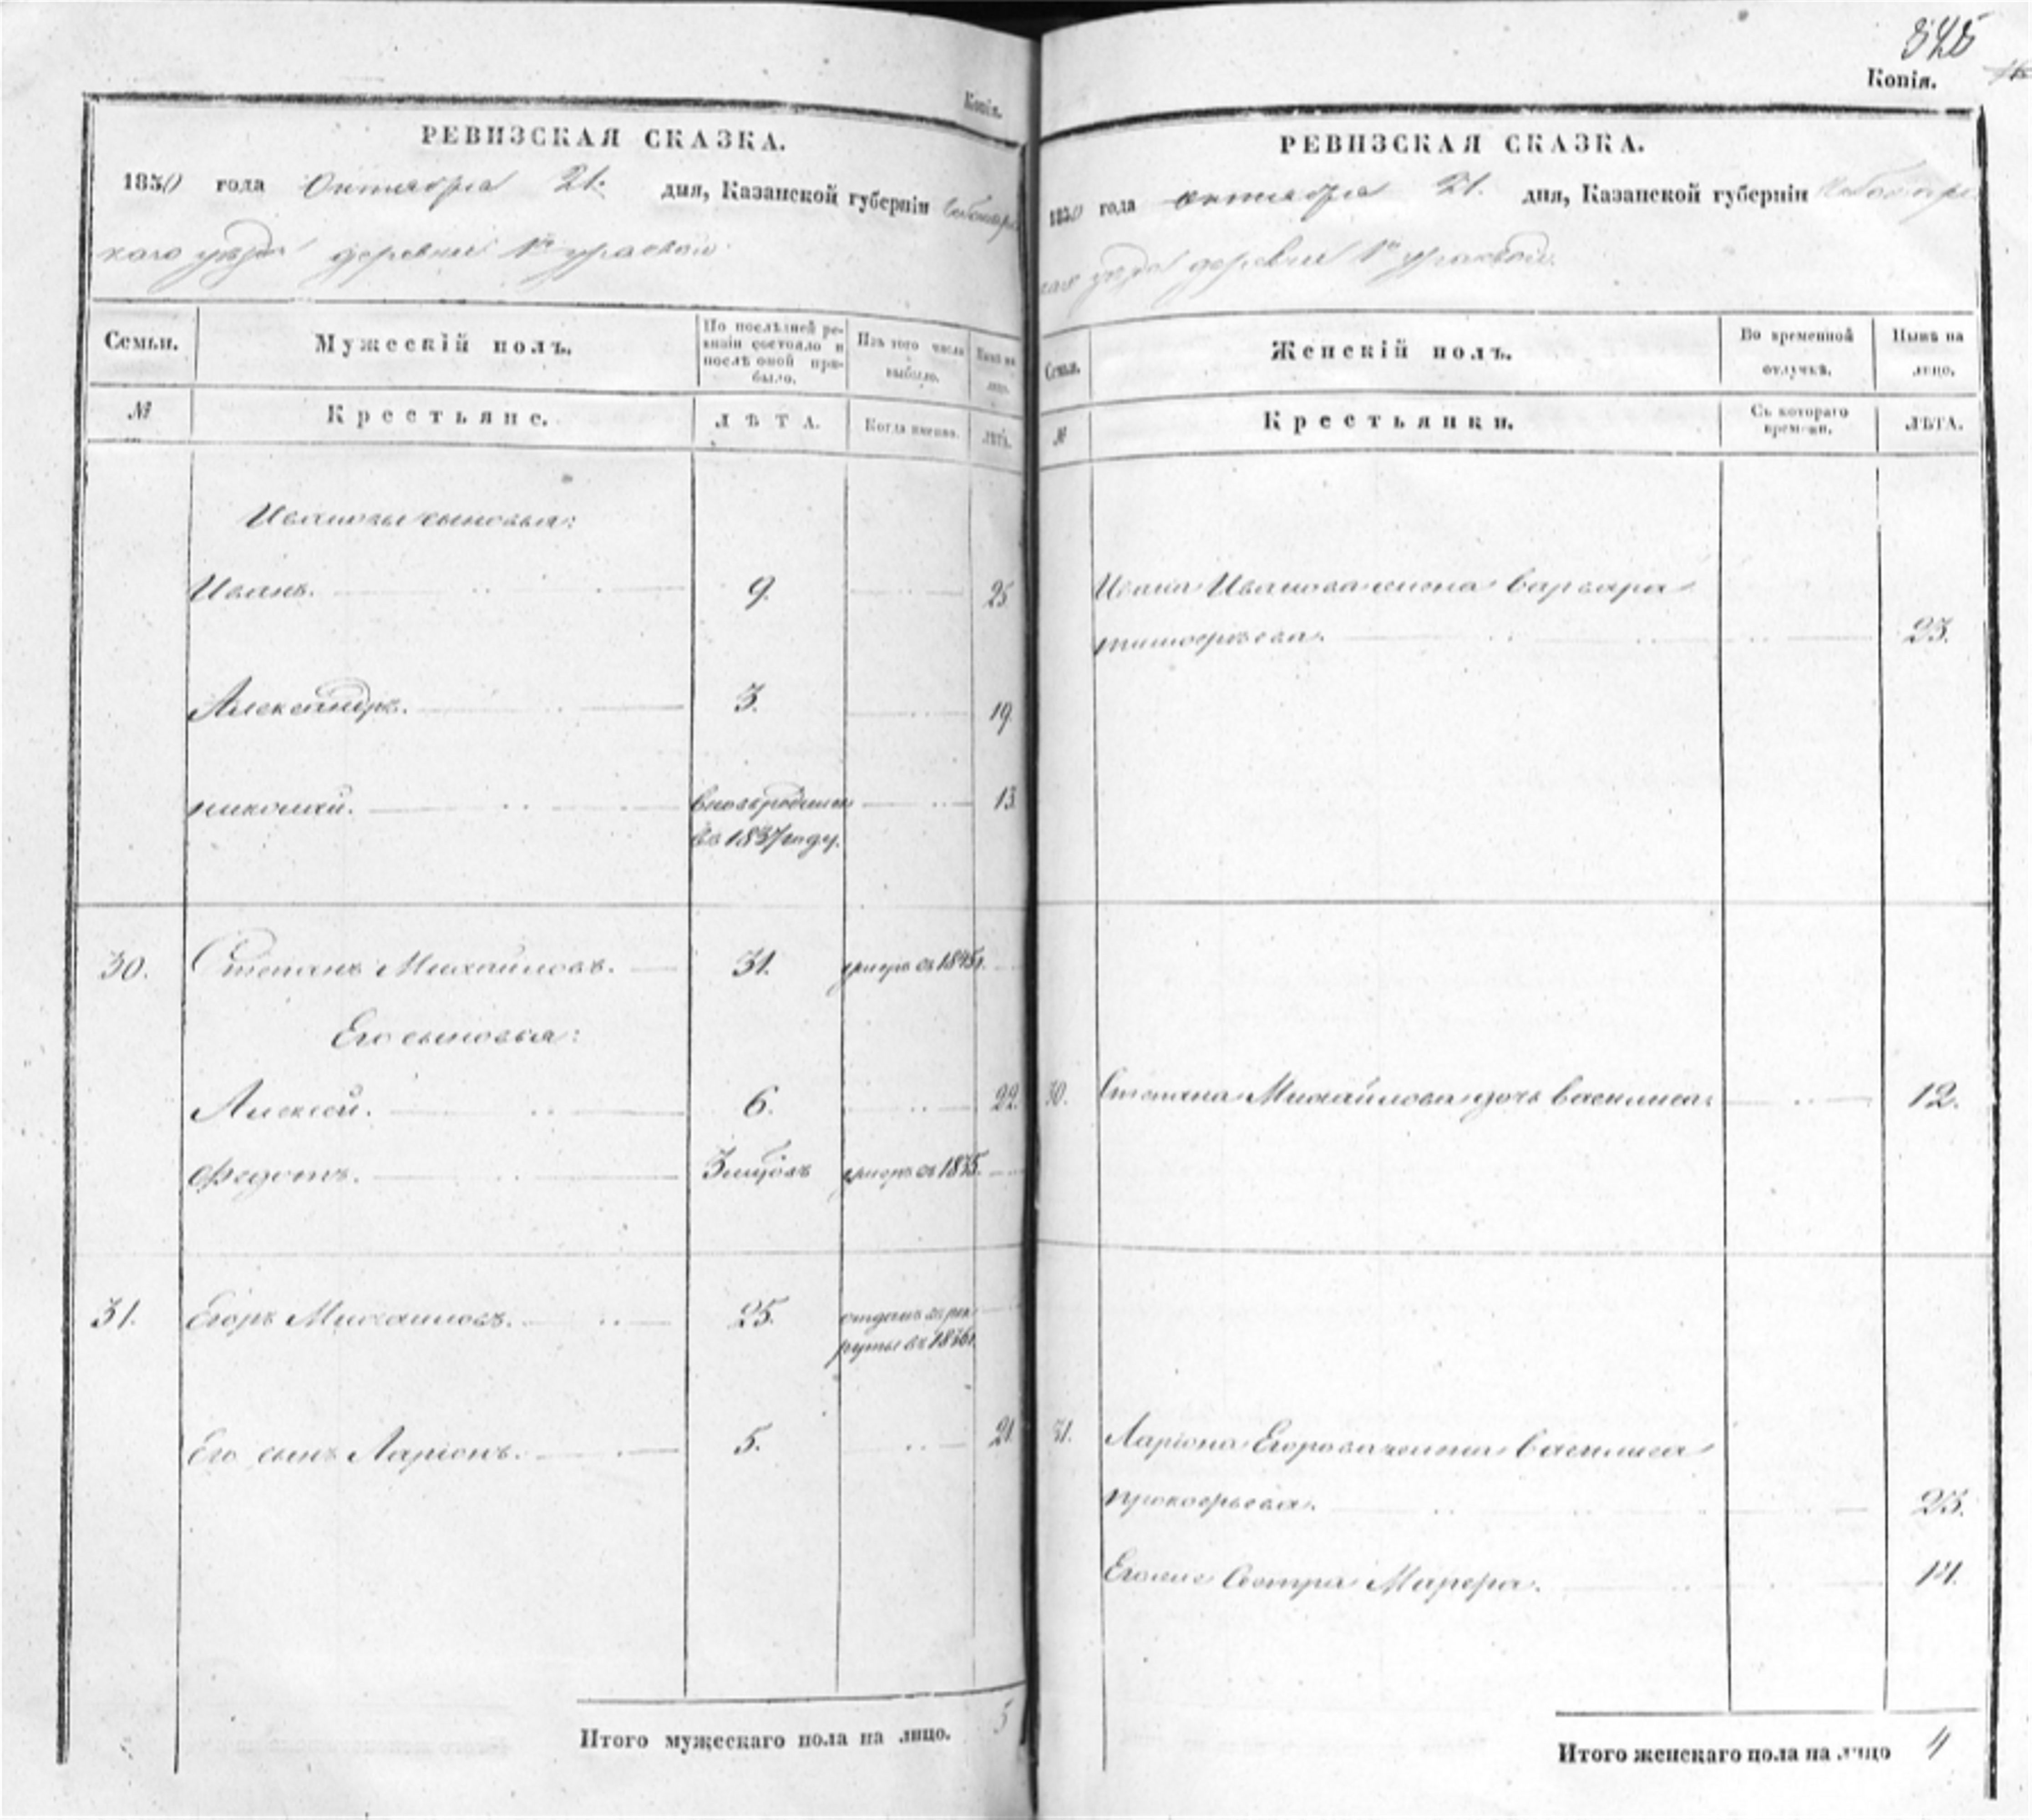 Копія.
РЕВИЗСКАЯ СКАЗКА.
1850 года Октября 21. дня, Казанской губерніи Чебоксарс
каго уѣзда деревни 1й
Семьи. Мужескій полъ. По послѣдней ре- Изъ того числа Нынѣ на
визіи состояло и
послѣ оной при- выбыло. лицо.
было.
№ Крестьяне. ЛѢТА. Когда именно. ЛѢТА.
Ивановы сыновья:
Иванъ. 9. 25
Александръ. 3. 19.
Николай. вновьрожден 13.
въ 1837 году.
30. Степанъ Михайловъ. 31. умеръ въ 1845г.
Его сыновья:
Алексей. 6. 22.
Федотъ. 3 умеръ въ 1835.
31. Егоръ Михайловъ. 25. отданъ въ рек
руты въ 1836г.
Его сынъ Ларіонъ. 5. 21.
Итого мужескаго пола на лицо. 5
845
Копія.
РЕВИЗСКАЯ СКАЗКА.
1850 года октября 21. дня, Казанской губерніи Чебоксарс
каго уѣзда деревни 1й
Семьи. Женскій полъ. Во временной Нынѣ на
отлучкѣ. лицо.
№ Крестьянки. Съ котораго ЛѢТА.
времени.
Ивана Иванова жена Варвара
тимофеева. 23.
30. Степана Михайлова дочь Василиса 12.
31. Ларіона Егорова жена Василиса
прокофьева. 23.
Его же Сестра Марфа. 14.
Итого женскаго пола на лицо 4